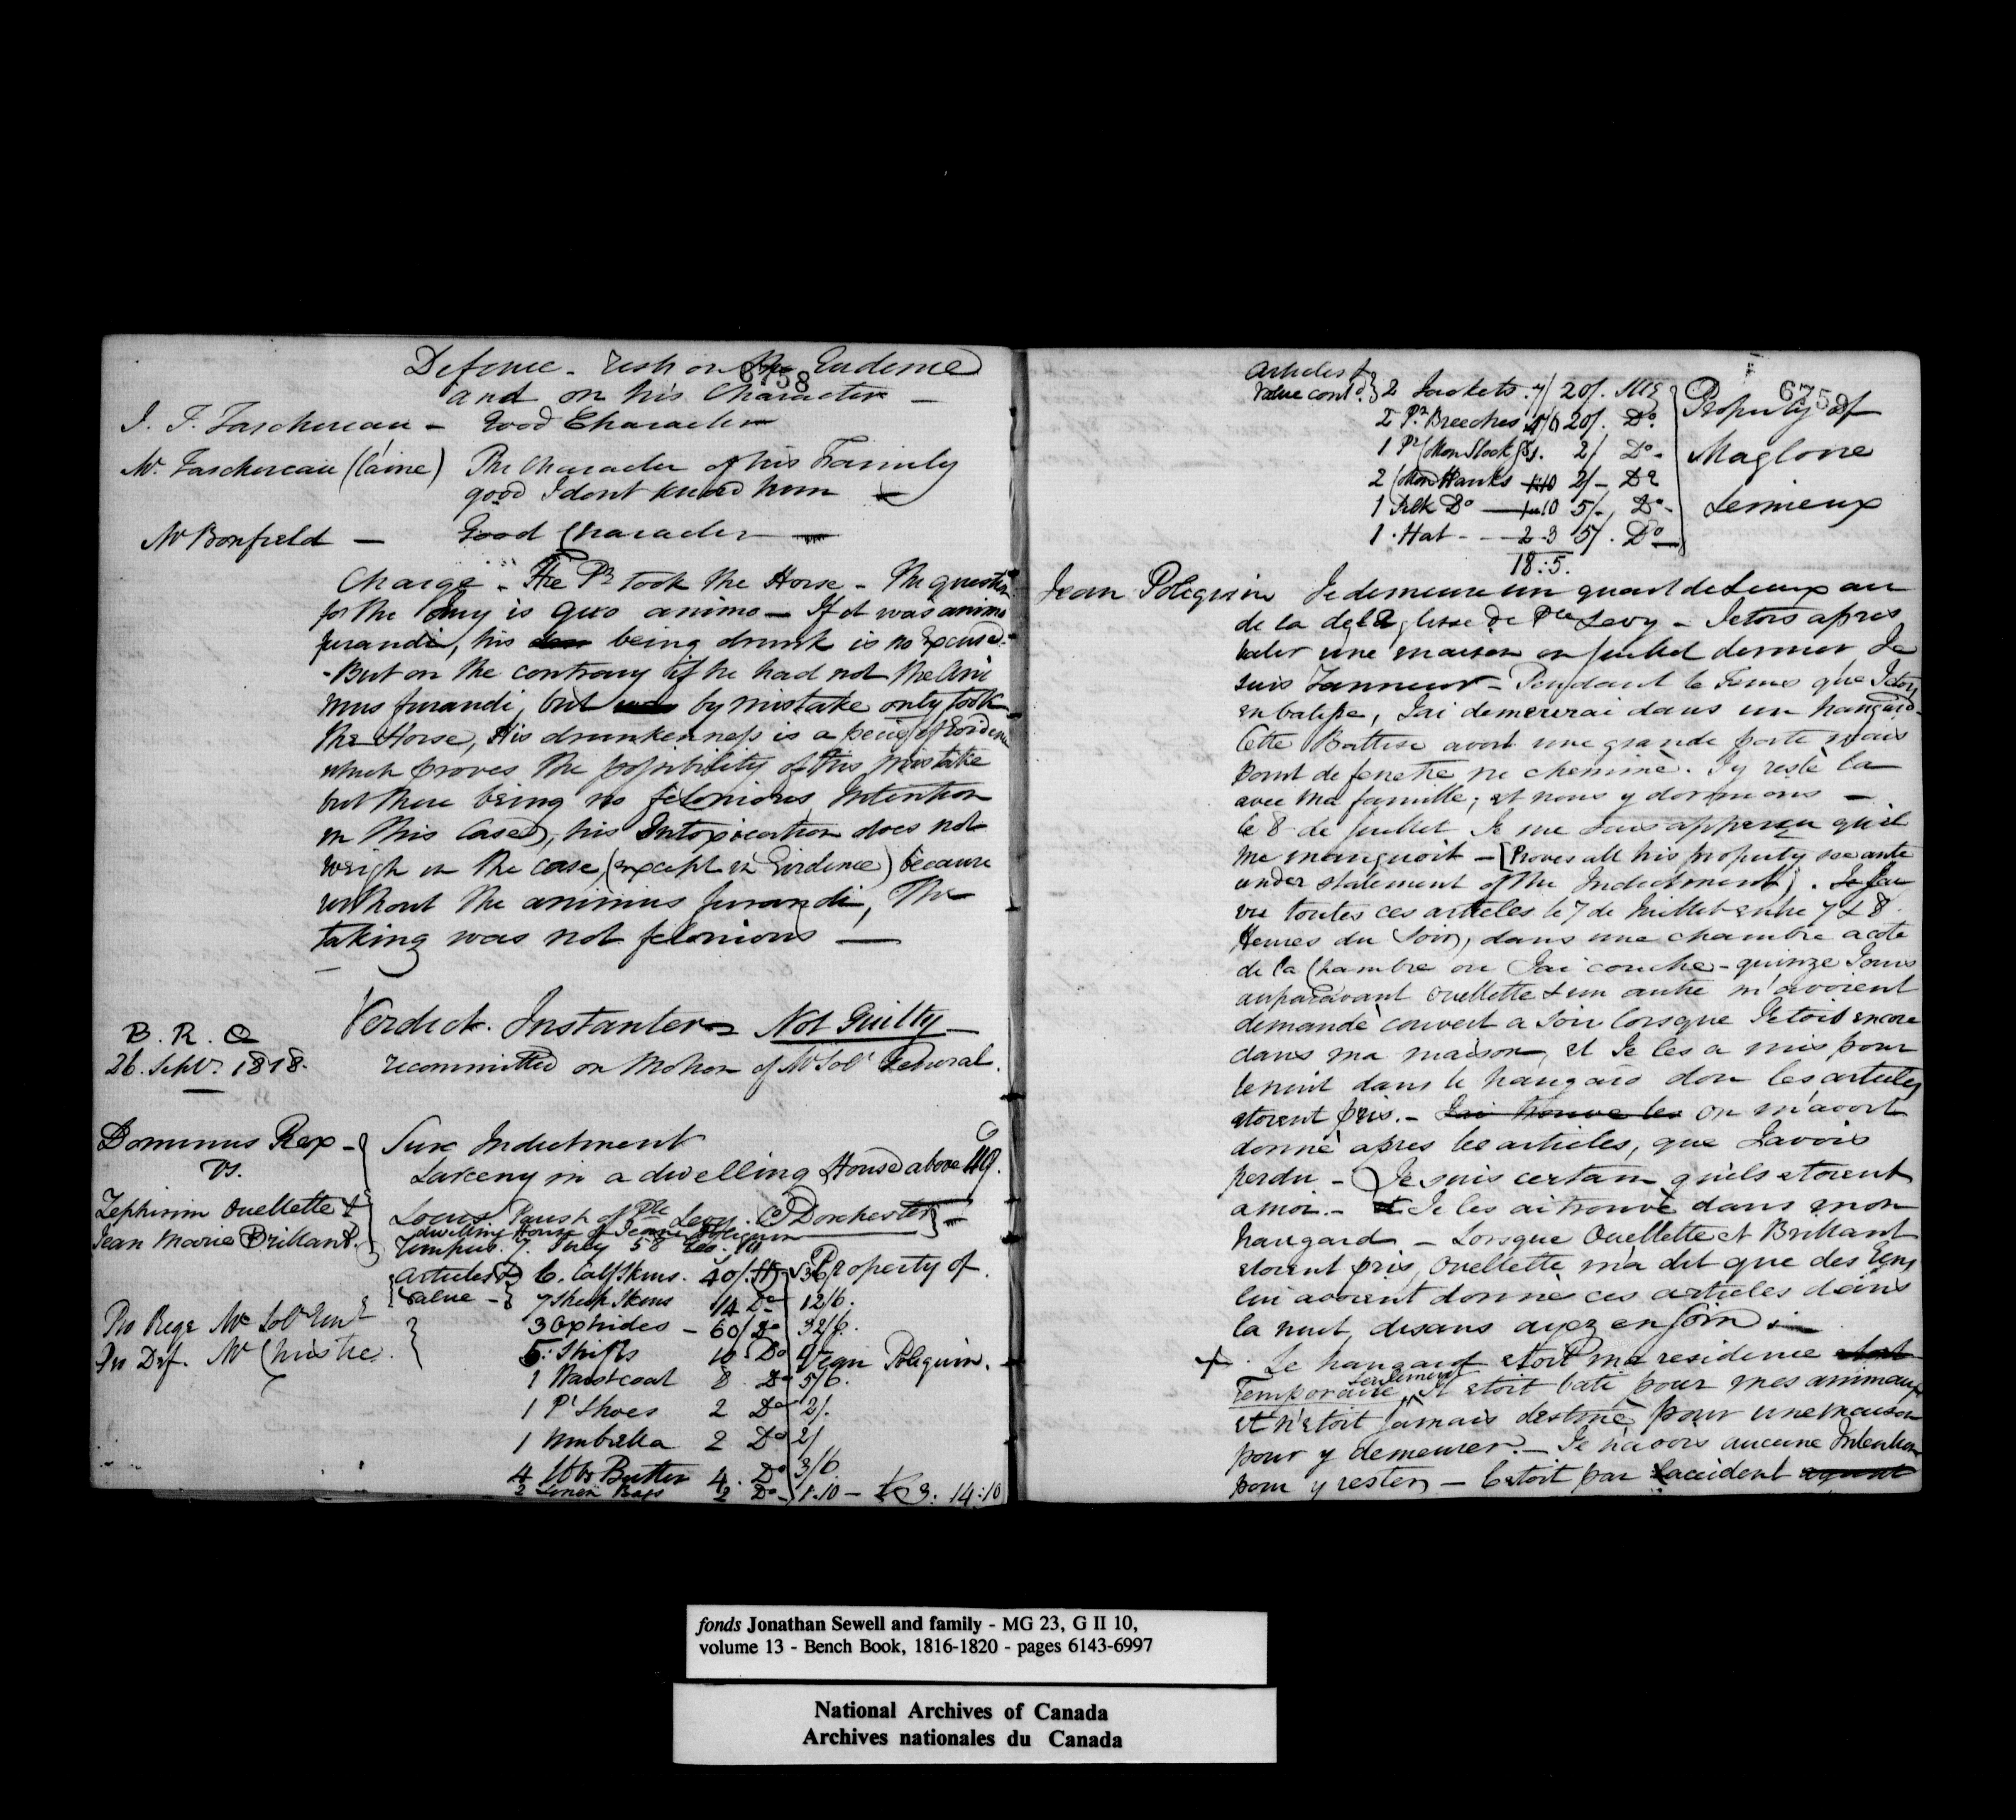 6758
Defence - rests on the Evidence
and on his Character -
J. T. Taschereau - Good Character
Mr. Taschereau (l'ainé) The Character of his Family
good I dont know him -
Mr Bonfield - Good Character -
Charge - The Pr took the Horse - The question
for the Jury is quo animo - If it was animo
furandi, his being drunk is no Excuse.
- But on the contrary if he had not the Ani
mus furandi, but by mistake only took
the Horse, His drunkenness is a peice of Evidence
which proves the possibility of this mistake
but there being no felonious Intention
in this Case, his Intoxication does not
weigh in the case, (except in Evidence) because
without the animus furandi, The
taking was not felonious -
Verdict. Instanter - Not Guilty -
B. R. Q
26. Septr. 1818.
recommitted on Motion of Mr Solr General.
Dominus Rex -
vs.
Zephirin Ouellette &
Jean Marie Brillant.
Sur Indictment
Larceny in a dwelling House above 40.
Locus Parish of Pte Levy. Co Dorchester -
dwelling House of Jean Poliquin
Tempus. 7. July 58 Geo.
Articles & Value -
6. Calf Skins. 40/. 36/
7 Sheep Skins 14 Do 12/6.
3 Ox hides - 60/ Do 32/6.
5. Shifts 10. Do
1 Waistcoat 8. Do 5/6.
1 Pr Shoes 2 Do 2/.
1 Umbrella 2 Do 2/
4 lbs Butter 4. Do 3/6
2 Linen Bags 2 Do 1.10 - £3: 14:10
Property of
Jean Poliquin.
Pro Rege Mr Solr Genl
Pr Def. Mr Christie.
6759
Articles &
Value contd. 2 Jackets 7/ 20/. Stg
2 Pr Breeches 20/. Do.
1 Pr Cotton Stockgs. 2/ Do -
2 Cotton Hanks 2/- Do
1 Silk Do - 5/-, Do -
1. Hat - - 2-3 5/. Do -
18:5.
Property of
Maglore
Lemieux
Jean Poliquin Je demeure un quart de Lieux au
de la de l'Eglisse de Pte Levy - Jetois apres
batir une maison en juillet dernier Je
suis Tanneur - Pendant le Tems que Jetois
en batisse, Jai demeurai dans un hangard -
Cette Battise avoit une grande porte mais
point de fenetre ne cheminè. Jy restè la
avec ma famille; et nous y dormions -
le 8 de juillet Je me suis apperçu qu'il
me manquoit - [Proves all his property see ante
under statement of the Indictment]. Je lai
vu toutes ces articles le 7 de Juillet entre 7 & 8
Heures du Soir, dans une chambre a cote
de la Chambre ou Jai couche - quinze Jours
auparavant Ouellette & un autre m'avoient
demandè couvert a Soir lorsque Jetois encore
dans ma maison, et Je les a mis pour
le nuit dans le hangard dou les articles
etoient pris. - Jai trouve les On m'avoit
donnè apres les articles, que Javois
perdu - Je suis certain quils etoient
a moi. - Je les ai trouvè dans mon
hangard - Lorsque Ouellette et Brillant
etoient pris, Ouellette m'a dit que des Gens
lui avoient donnès ces articles dans
la nuit, disans ayez en soin -
+ Le hangard etoit ma residence
Temporaire seulement, Il etoit bati pour mes animaux
et n'etoit jamais destinè pour une maison
pour y demeurer. - Je n'avois aucune Intention
pour y rester - C'etoit par laccident
fonds Jonathan Sewell and family - MG 23, G II 10,
volume 13 - Bench Book, 1816-1820 - pages 6143-6997
National Archives of Canada
Archives nationales du Canada